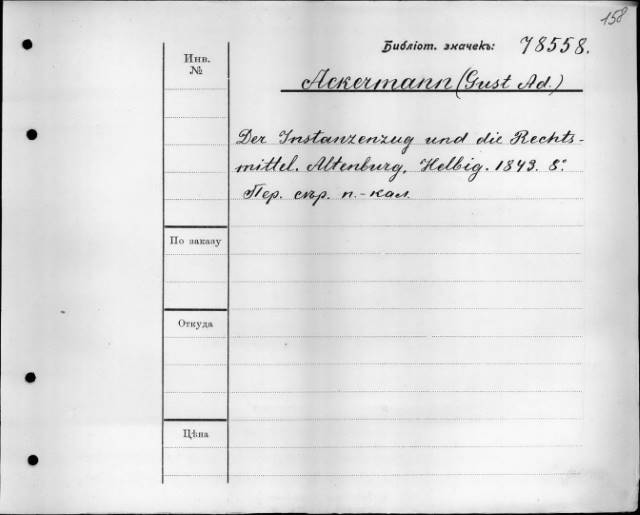 158
Библіот. значекъ: 78558.
Инв.
№
Ackermann (Gust Ad.)
Der Instanzenzug und die Rechts-
mittel. Altenburg, Helbig. 1843. 8°
Пер. сѣр. п.-кал.
По заказу
Откуда
Цѣна